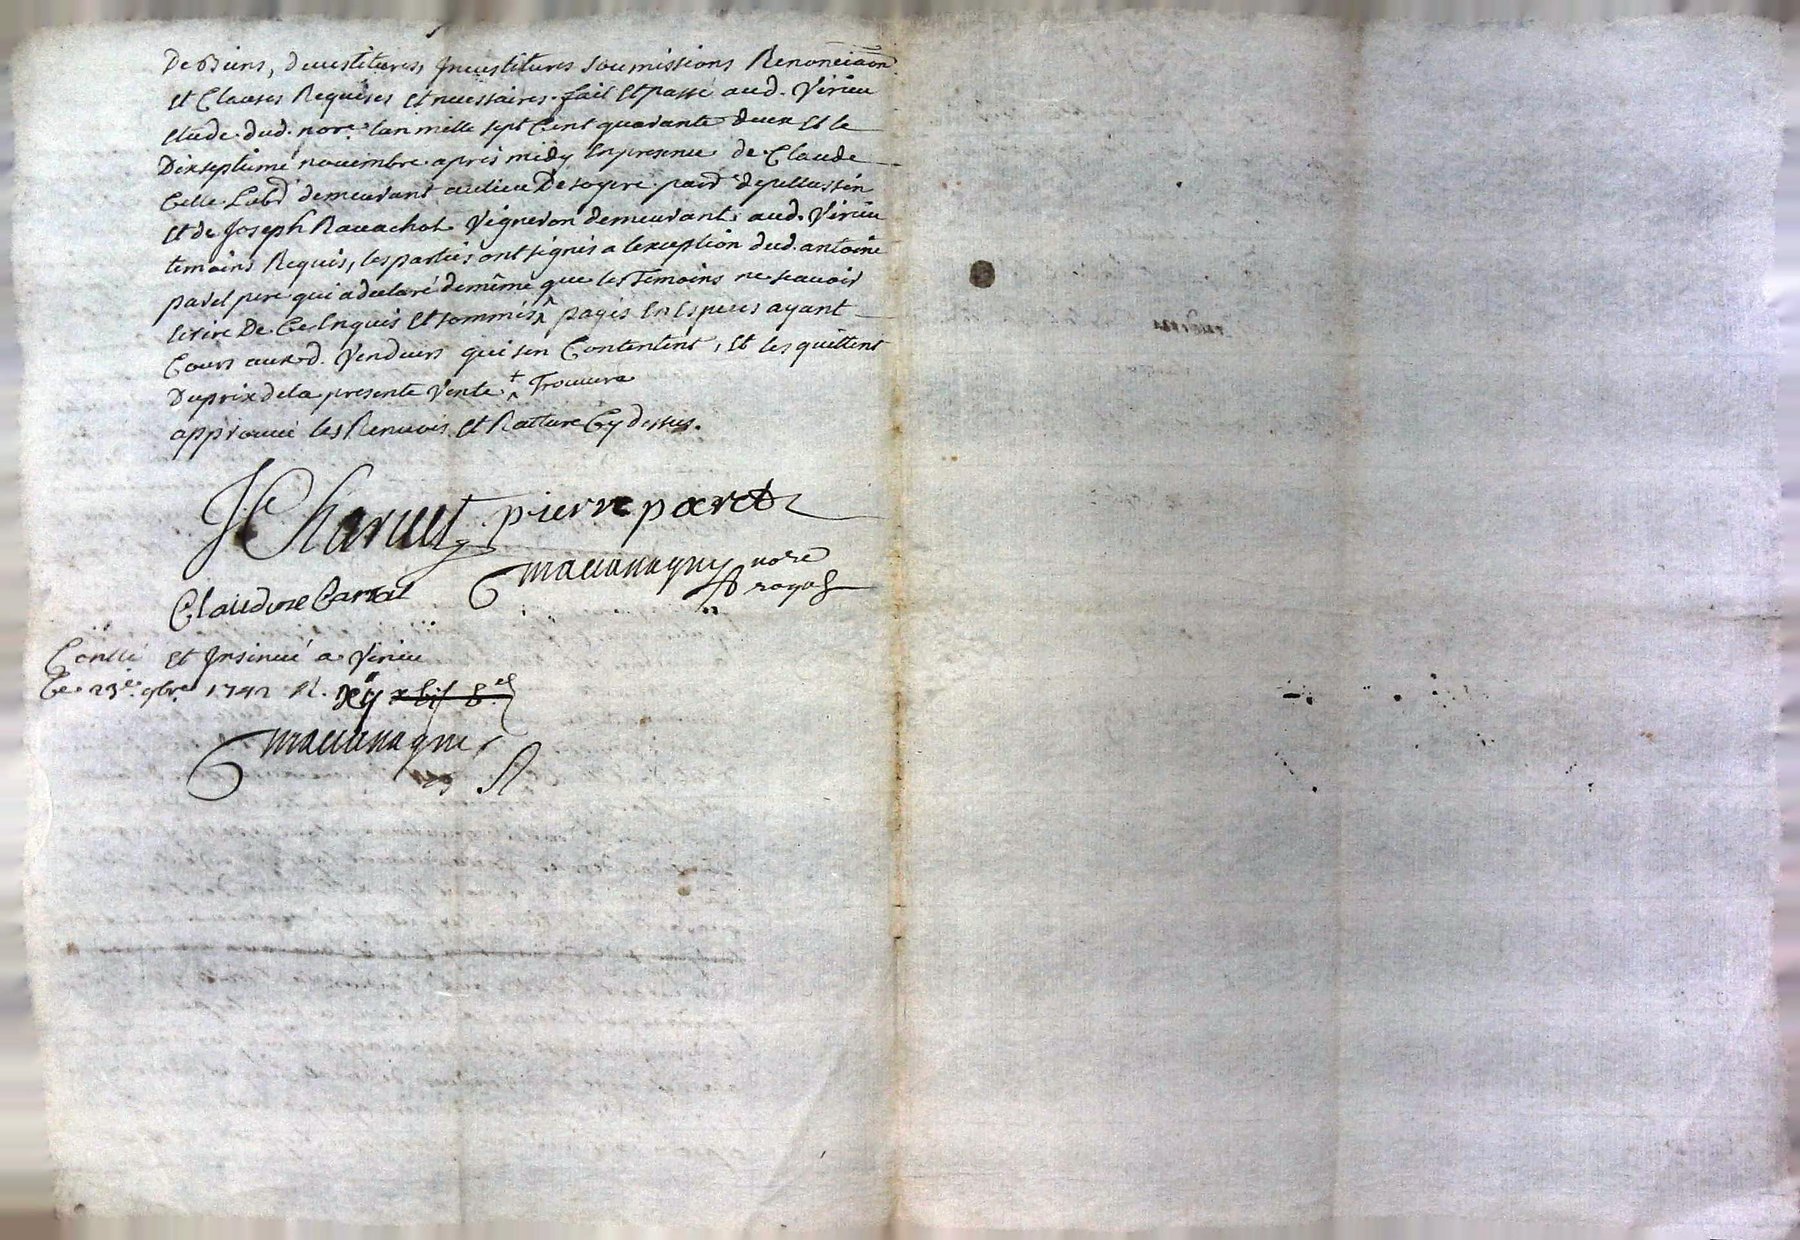 De Biens, devestitures, Investitures soumissions Renonciaōn
et Clauses Requises et necessaires. fait et passé aud. Virieu
etude dud. nore. lan mille sept Cent quarante deux et le
Dixseptieme novembre apres midy En presence de Claude
Celle Labd demeurant au lieu De sogere pard depellussin
et de Joseph Ravachol Vigneron demeurant aud. Virieu
temoins Requis, les parties ont signés a lexception dud. antoine
paret pere qui a declaré de même que les Temoins ne scavoir
Ecrire De Ce Enquis et sommés ^ payés En Especes ayant
Cours auxd. Vendeurs qui sen Contentent, et les quittent
Du prix de la presente Vente +
approuvé les Renvois et Ratture Cy dessus.
J Charvet pierre paret
Mavanagny nore
royal
Claudine
Conllé et Insinué a Virieu
Ce 23e. 9bre 1742 R. xij
Mavanagny